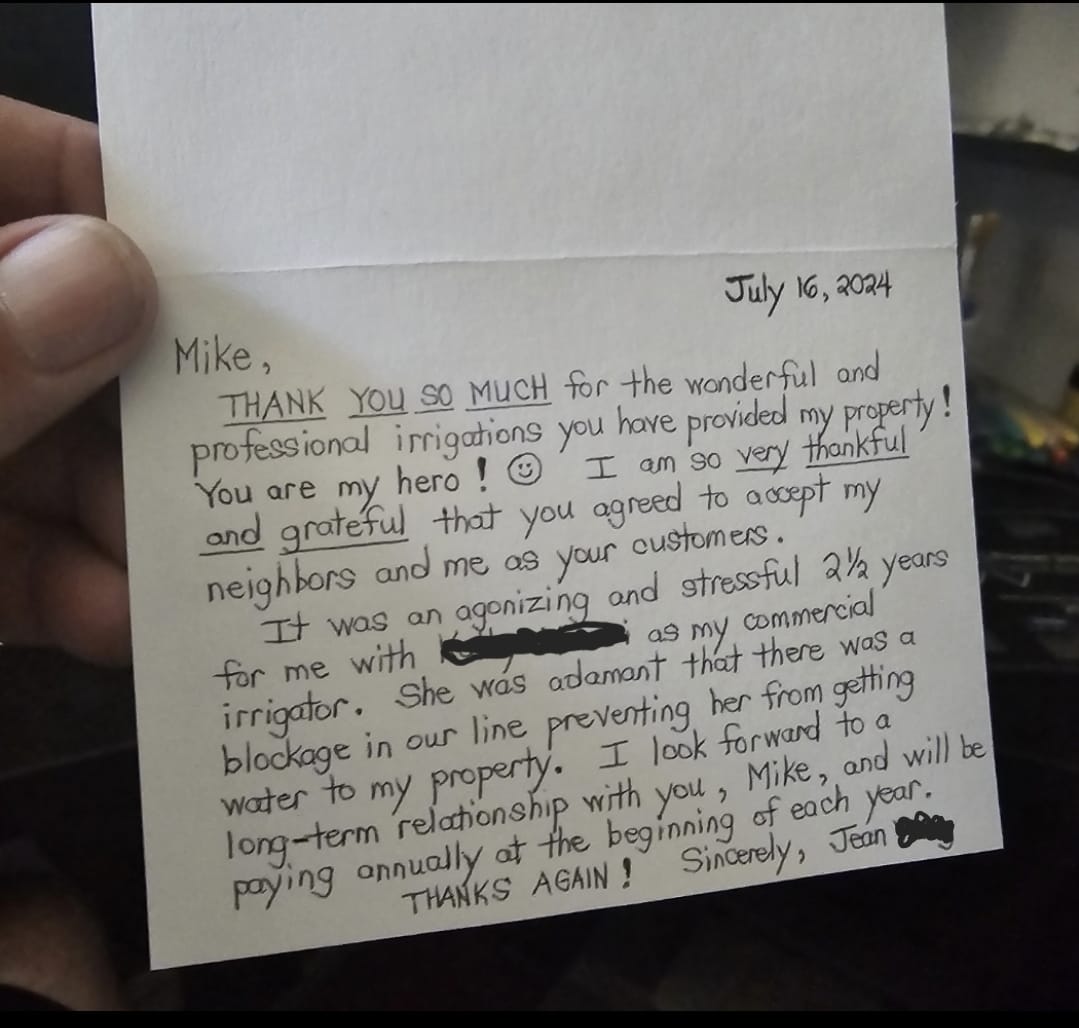 July 16, 2024
Mike,
THANK YOU SO MUCH for the wonderful and
professional irrigations you have provided my property!
You are my hero! ☺ I am so very thankful
and grateful that you agreed to accept my
neighbors and me as your customers.
It was an agonizing and stressful 2½ years
for me with as my commercial
irrigator. She was adamant that there was a
blockage in our line preventing her from getting
water to my property. I look forward to a
long-term relationship with you, Mike, and will be
paying annually at the beginning of each year.
THANKS AGAIN! Sincerely, Jean